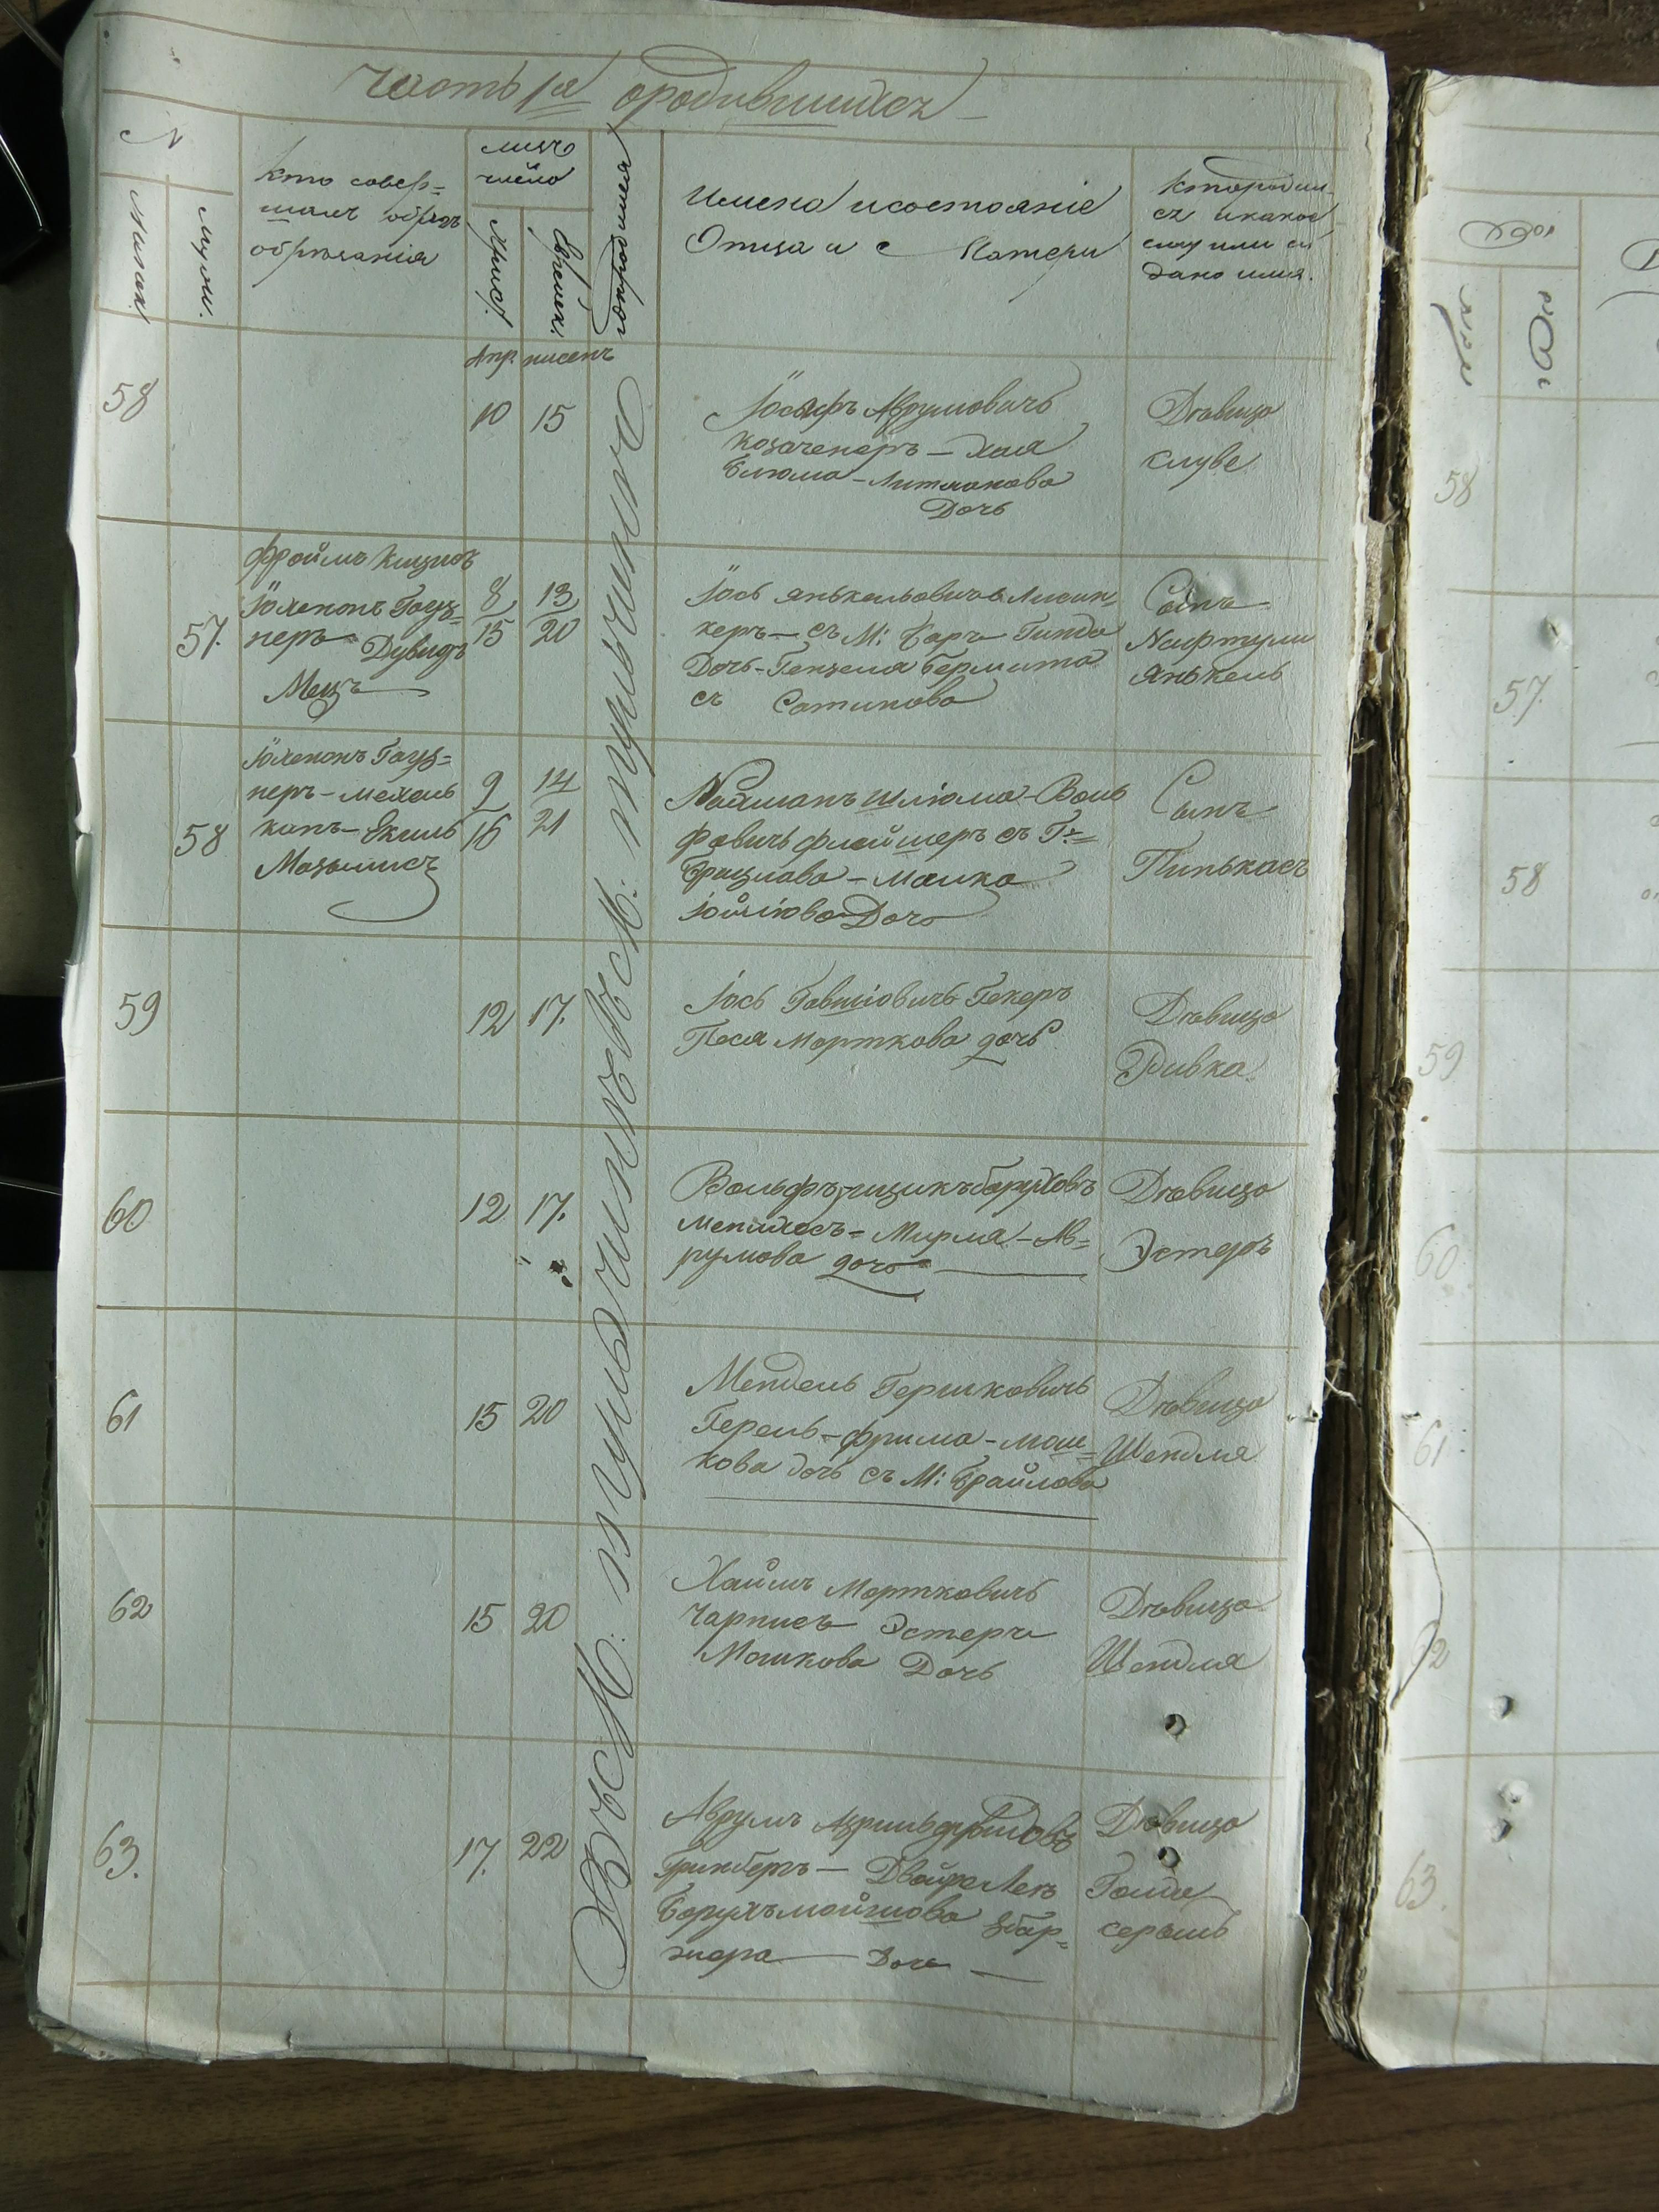 Часть 1я ородившихся
N
Женск.
Мужи.
Кто совер=
шалъ обрядъ
обрѣзанія
число
Христ.
Еврейск.
где родился
Имена и состояніе
Отца и Матери
Кто родил-
ся и какое
ему или ей
дано имя.
Апр. нисенъ
въ М: тульчинѣ въ М: тульчинѣ
58
10 15
Іосифъ Аврумовичъ
Козаченеръ — Хая
Блюма - Литманова
Дочь
Дѣвица
Слуве
57.
Фроймъ Кицисъ
Іохенонъ Гауз=
неръ Дувидъ
Мецъ
8 13
15 20
Іось Янькельовичъ Лисин=
керъ — съ М: Баръ Гинда
Дочь - Гензеля Бермита
съ Сатанова
Сынъ
Нафтули
Янькель
58
Іохенонъ Гауз=
неръ - Мехель
канъ - Екель
Мазалисъ
9 14
16 21
Нахманъ Шліома - Воль
фовичъ флейшеръ съ Г:
Брацлава - Малка
Іойліова Дочь
Сынъ
Пинькасъ
59
12 17.
Іось Говшіовичъ Гекеръ
ПесяМорткова дочь
Дѣвица
Ривка.
60
12 17.
Вольфъ-ицикъ боруховъ
Менихесъ = Мирля - Ав=
румова дочь
Дѣвица
Эстеръ
61
15 20
Мендель Гершковичъ
Герель - фрима - мош=
кова дочь съ М: Браилова
Дѣвица
Шендля
62
15 20
Хаимъ Мортковичъ
Чарнисъ Эстеръ
Мошкова Дочь
Дѣвица
Шендля
63.
17. 22
Аврумъ Азриль
Гринберъ — Двойра Лея
Борухъ мойшова Збар=
жера — Дочь —
Дѣвица
Голде
серыль
58
57.
58
59
60
61
62
63.